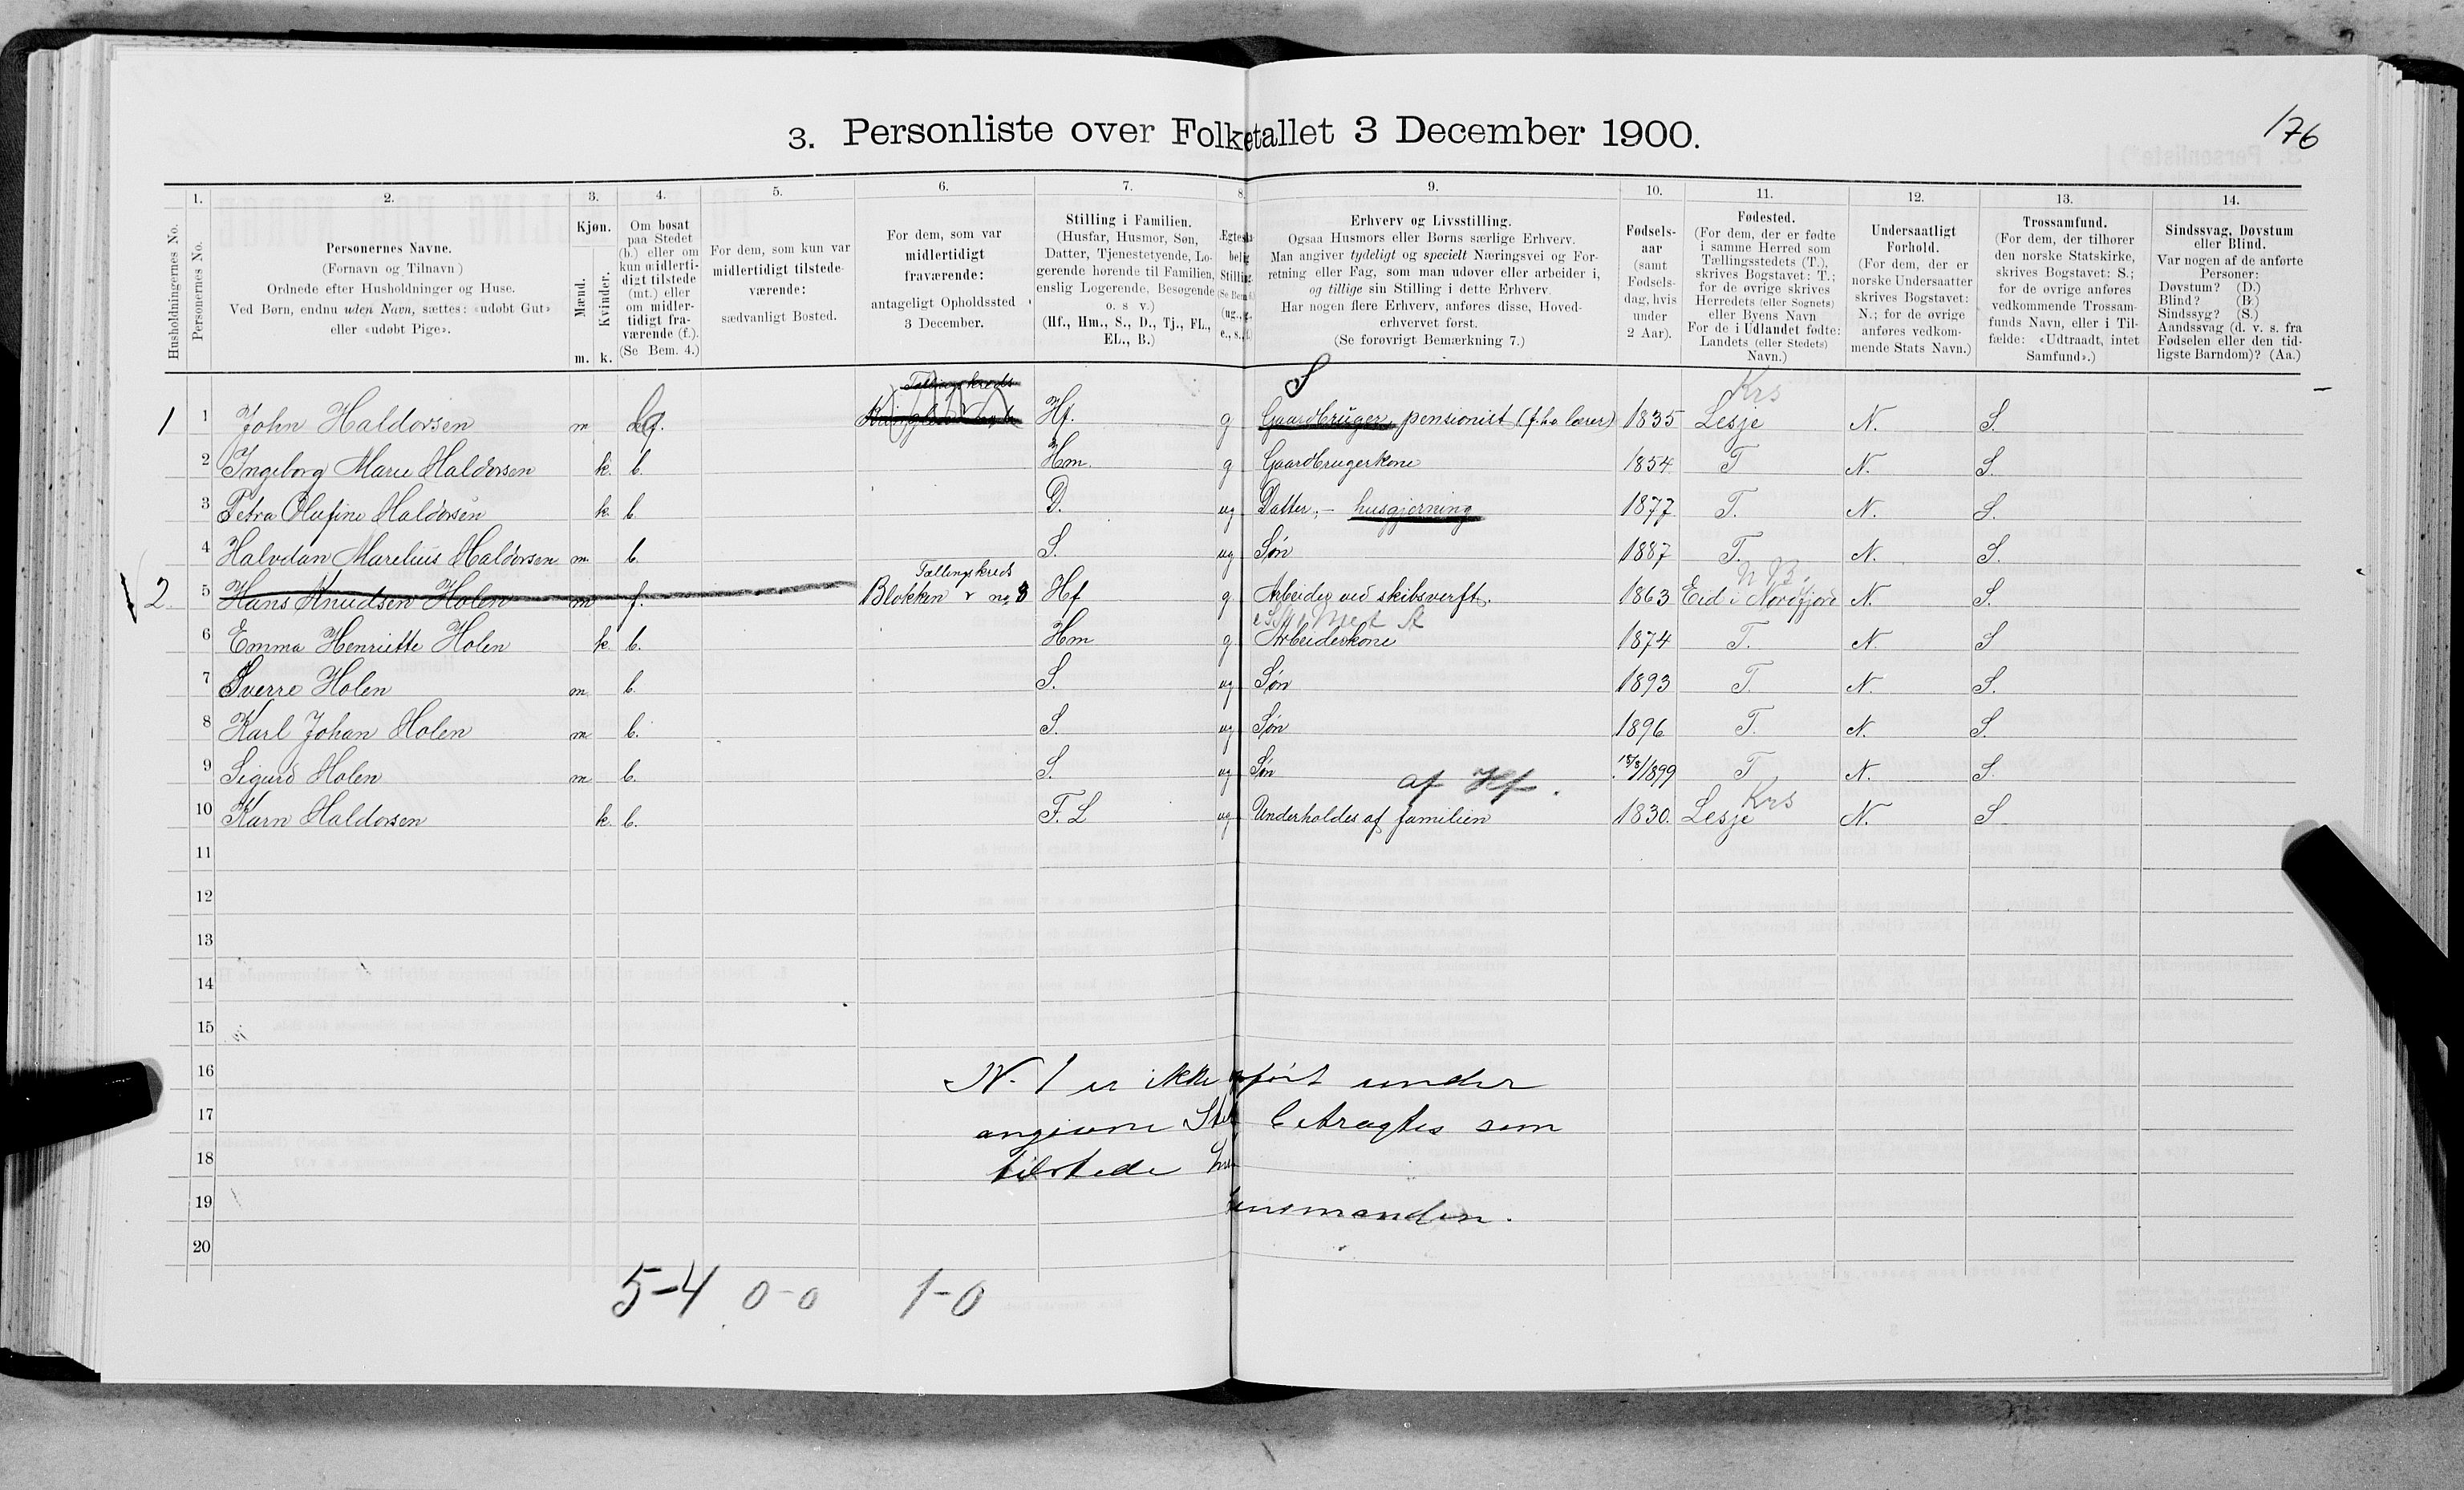 176
3. Personliste over Folketallet 3 December 1900.
Husholdningernes No.
1.
Personernes No.
2.
Personernes Navne.
(Fornavn og Tilnavn)
Ordnede efter Husholdninger og Huse.
Ved Børn, endnu uden Navn, sættes: «udøbt Gut»
eller «udøbt Pige».
3.
Kjøn.
Mænd.
Kvinder.
m. k.
4.
Om bosat
paa Stedet
(b.) eller om
kun midlerti-
digt tilstede
(mt.) eller
om midler-
tidigt fra-
værende (f.).
(Se Bem. 4.)
5.
For dem, som kun var
midlertidigt tilstede-
værende:
sædvanligt Bosted.
6.
For dem, som var
midlertidigt
fraværende:
antageligt Opholdssted
3 December.
7.
Stilling i Familien.
(Husfar, Husmor, Søn,
Datter, Tjenestetyende, Lo-
gerende hørende til Familien,
enslig Logerende, Besøgende
o. s v.)
(Hf., Hm., S., D., Tj., FL.,
EL., B.)
8.
Ægteska-
belig
Stilling.
(Se Bem. 6.)
(ug., g.,
e., s., f.)
9.
Erhverv og Livsstilling.
Ogsaa Husmors eller Børns særlige Erhverv.
Man angiver tydeligt og specielt Næringsvei og For-
retning eller Fag, som man udøver eller arbeider i,
og tillige sin Stilling i dette Erhverv.
Har nogen flere Erhverv, anføres disse, Hoved-
erhvervet først.
(Se forøvrigt Bemærkning 7.)
10.
Fødsels-
aar
(samt
Fødsels-
dag, hvis
under
2 Aar).
11.
Fødested.
(For dem, der er fødte
i samme Herred som
Tællingsstedets (T.),
skrives Bogstavet: T.;
for de øvrige skrives
Herredets (eller Sognets)
eller Byens Navn
For de i Udlandet fødte:
Landets (eller Stedets)
Navn.)
12.
Undersaatligt
Forhold.
(For dem, der er
norske Undersaatter
skrives Bogstavet:
N.; for de øvrige
anføres vedkom-
mende Stats Navn.)
13.
Trossamfund.
(For dem, der tilhører
den norske Statskirke,
skrives Bogstavet: S.;
for de øvrige anføres
vedkommende Trossam-
funds Navn, eller i Til-
fælde: «Udtraadt, intet
Samfund».)
14.
Sindssvag, Døvstum
eller Blind.
Var nogen af de anførte
Personer:
Døvstum? (D.)
Blind? (B.)
Sindssyg? (S.)
Aandssvag (d. v. s. fra
Fødselen eller den tid-
ligste Barndom)? (Aa.)
Tællingskreds S Krs
1 1 John Haldorsen m Hf. g Gaardbruger, pensionist (f.h.v lærer) 1835 Lesje N. S.
2 Ingeborg Marie Haldorsen k. b. Hm. g Gaardbrugerkone 1854 T N. S.
3 Petra Olufine Haldorsen k. b. D. ug Datter; - husgjerning 1877 T. N. S.
4 Halvdan Marelius Haldorsen m. b. S. ug Søn 1887 T. N. S.
Tællingskreds
2. 5 Hans Knudsen Holen m f. Blokken no 3 Hf g Arbeider ved skibsverft. 1863 Eid i Nordfjord N. S.
6 Emma Henriette Holen k b. Hm g Arbeiderkone 1874 T. N. S
7 Sverre Holen m b. S. ug Søn 1893 T. N. S.
8 Karl Johan Holen m b. S. ug Søn 1896 T. N. S.
9 Sigurd Holen m b. S. ug Søn 18/8/1899 T N. S.
af Hf. Krs
10 Karn Haldorsen k. b. F.L ug Underholdes af familien 1830. Lesje N. S
11
12
13
14
15
16 N. 1 er ikke opført under
17 angivne Sted betragtes som
18 tilstede
19 Lensmanden.
20
5-4 0-0 1-0